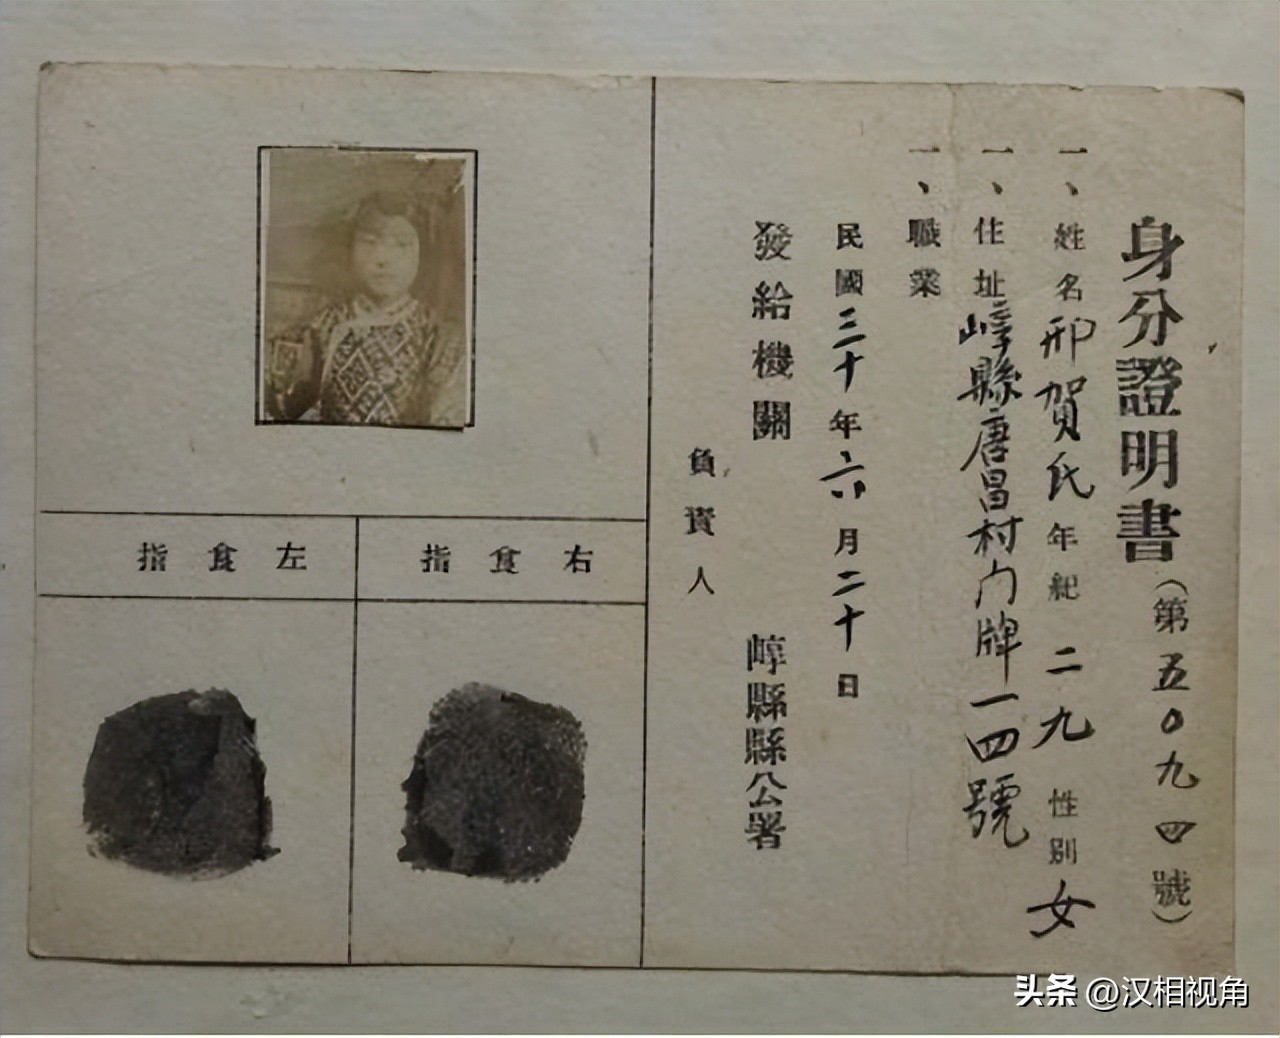 身分證明書(第五〇九四號)
一、姓名邢賀氏年紀二九性別女
一、住址崞縣唐昌村门牌一四號
一、職業
民國三十年六月二十日
發給機關 崞縣縣公署
負責人
右食指
左食指
头条 @汉相视角